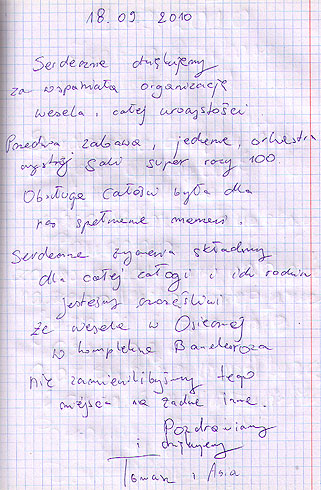 18.09 2010
Serdecznie dziękujemy
za wspaniałą organizację
wesela i całej uroczystości.
zabawa, jedzenie, orkiestra
wystrój Sali super razy 100
Obsługa całości była dla
nas spełnienie marzeń.
Serdeczne życzenia składamy
dla całej załogi i ich rodzin
jesteśmy szczęśliwi
że wesele w Osiecznej
w kompleksie Banderoza
nie zamienilibyśmy tego
miejsca na żadne inne.
Pozdrawiamy
i dziękujemy
Tomasz i Asia